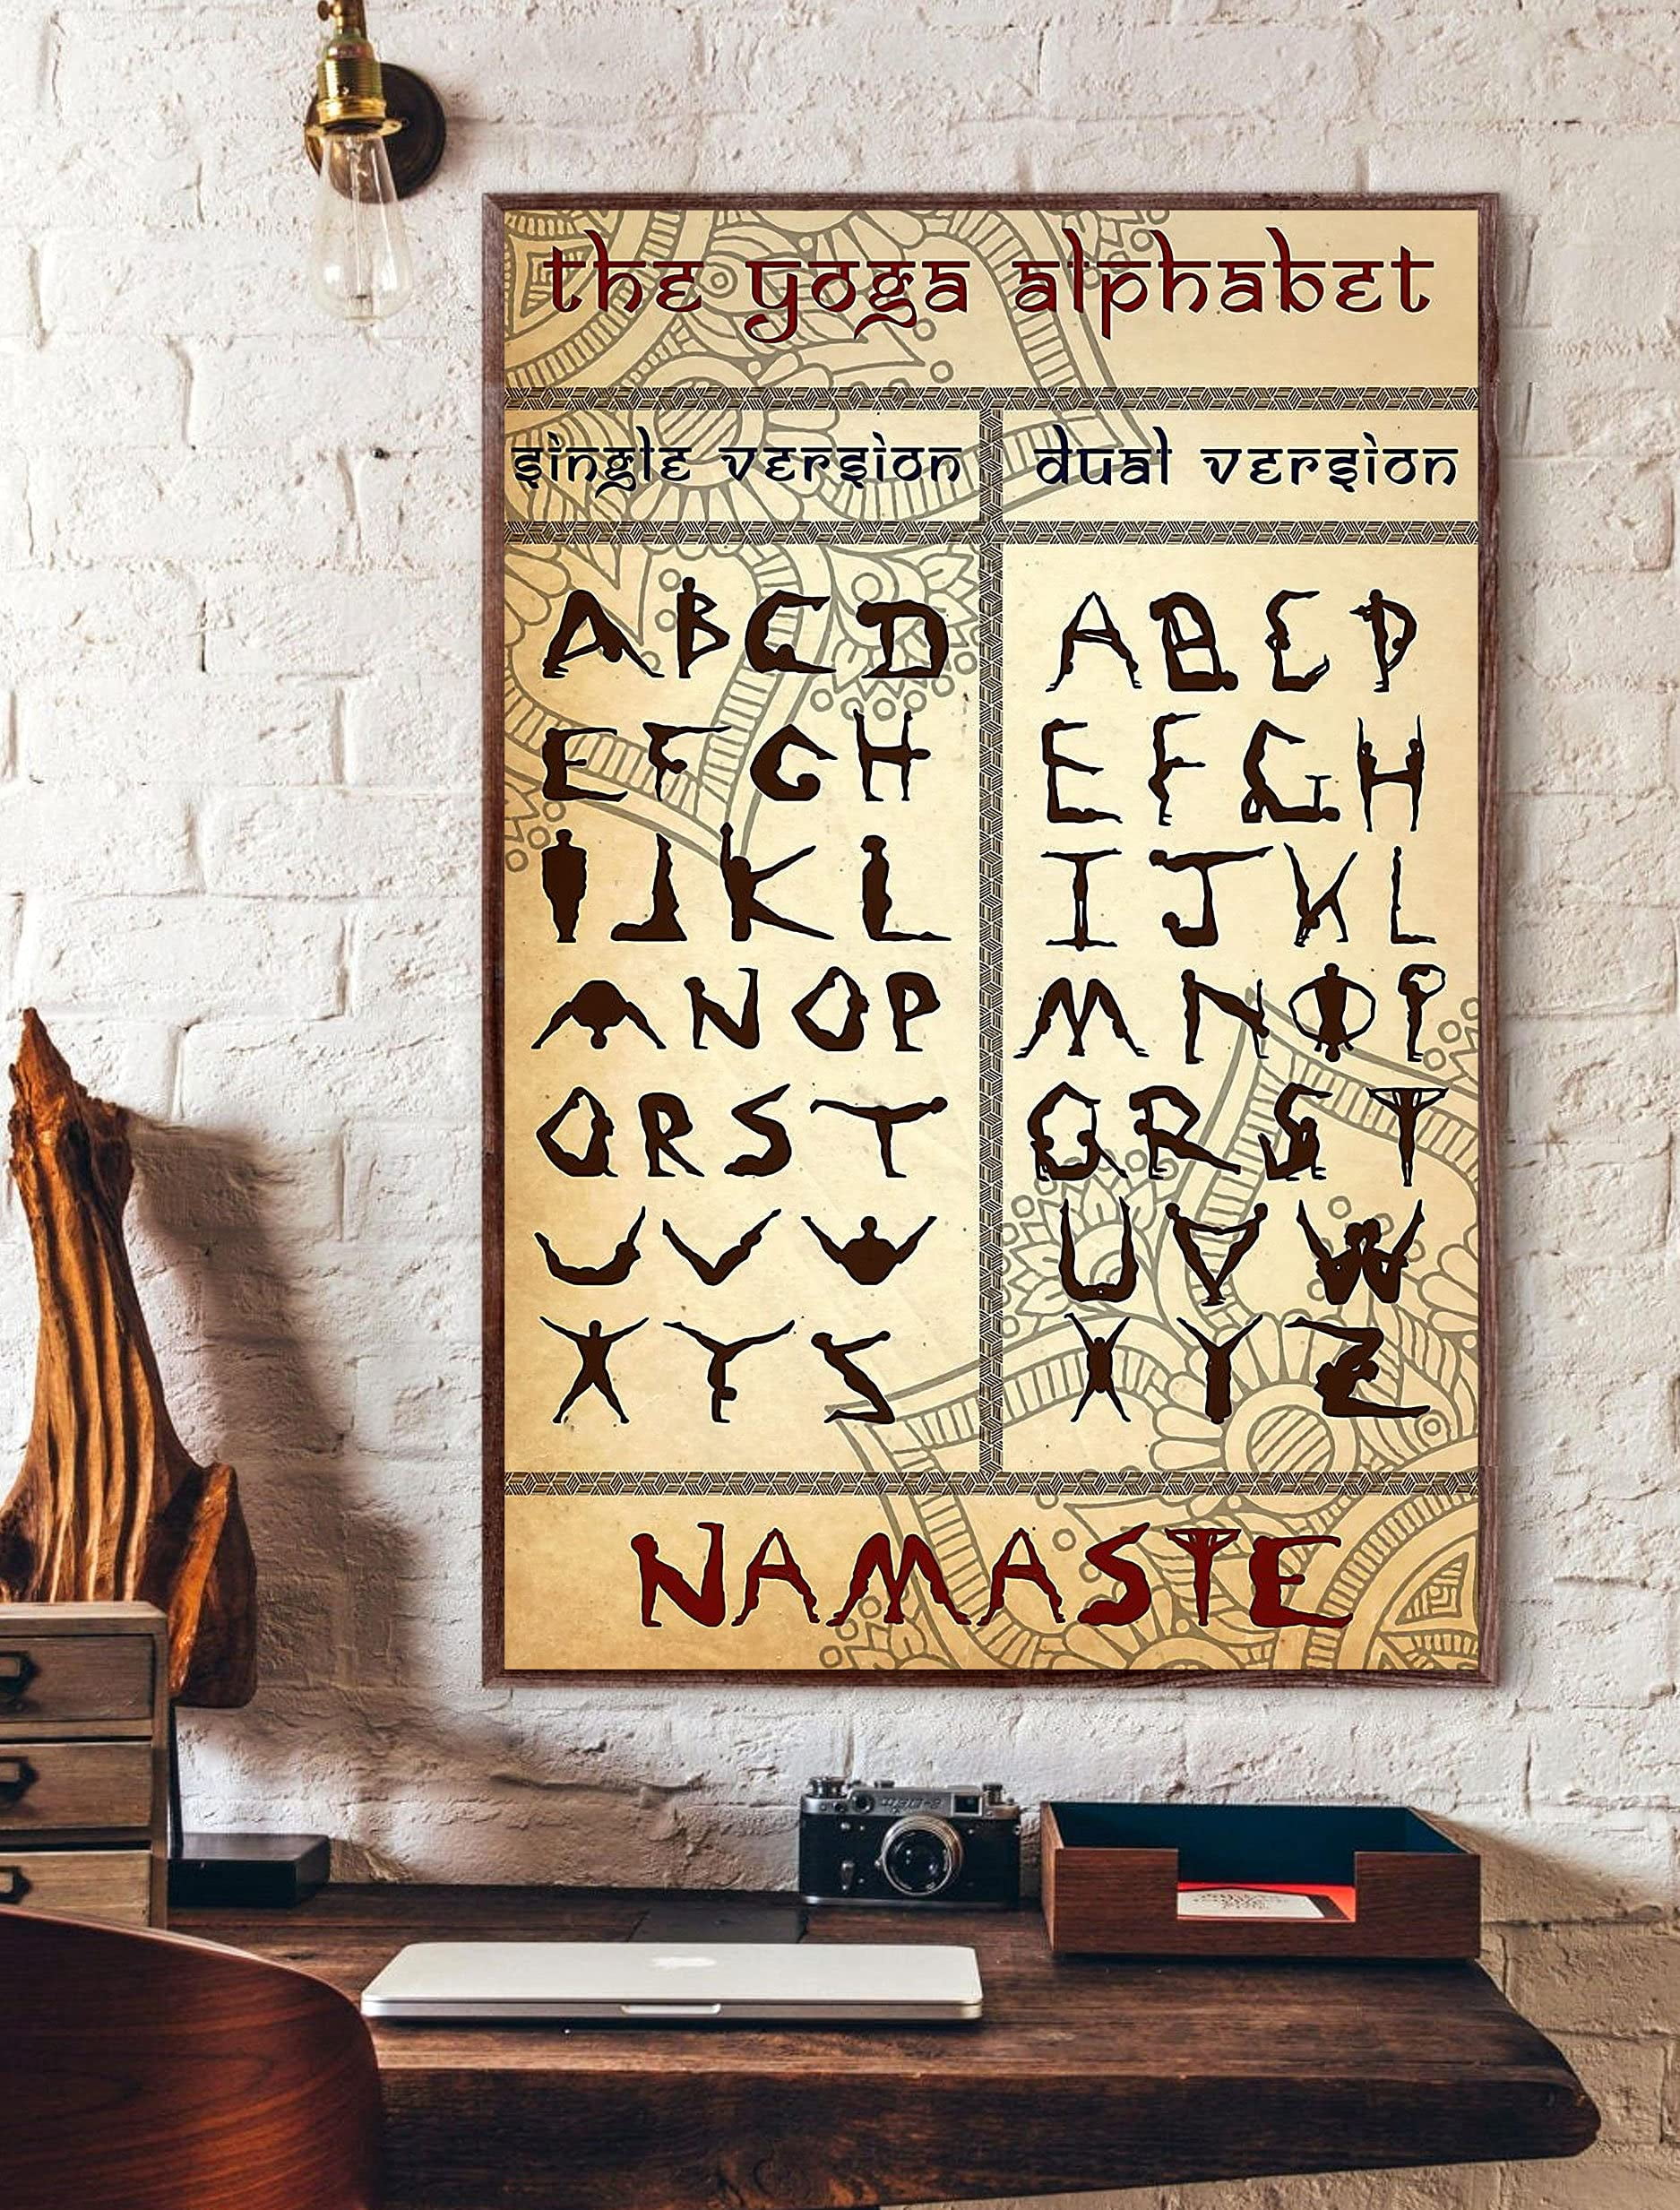 the yoga alphabet
single version
A B C D
E F G H
I J K L
M N O P
Q R S T
U V W
X Y Z
dual version
A B C D
E F G H
I J K L
M N O P
Q R S T
U V W
X Y Z
NAMASTE